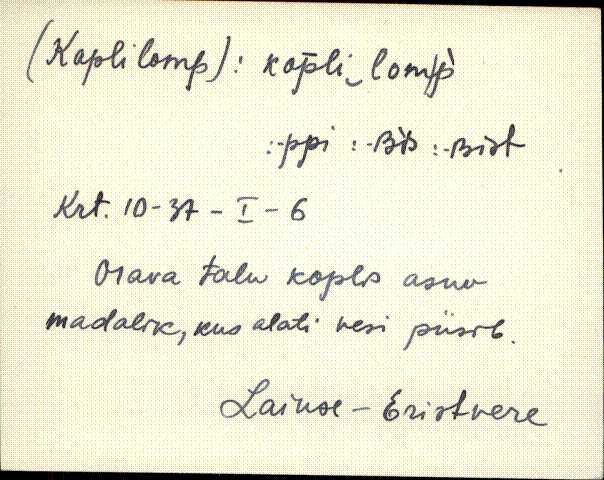 (Koplilomp): kop̄li‿lomp̀
:-ppi :-BIS :-Bist
Krt. 10-37 - I - 6
Orava talu koplis asuv
madalik, kus alati vesi püsib.
Laiuse - Eristvere